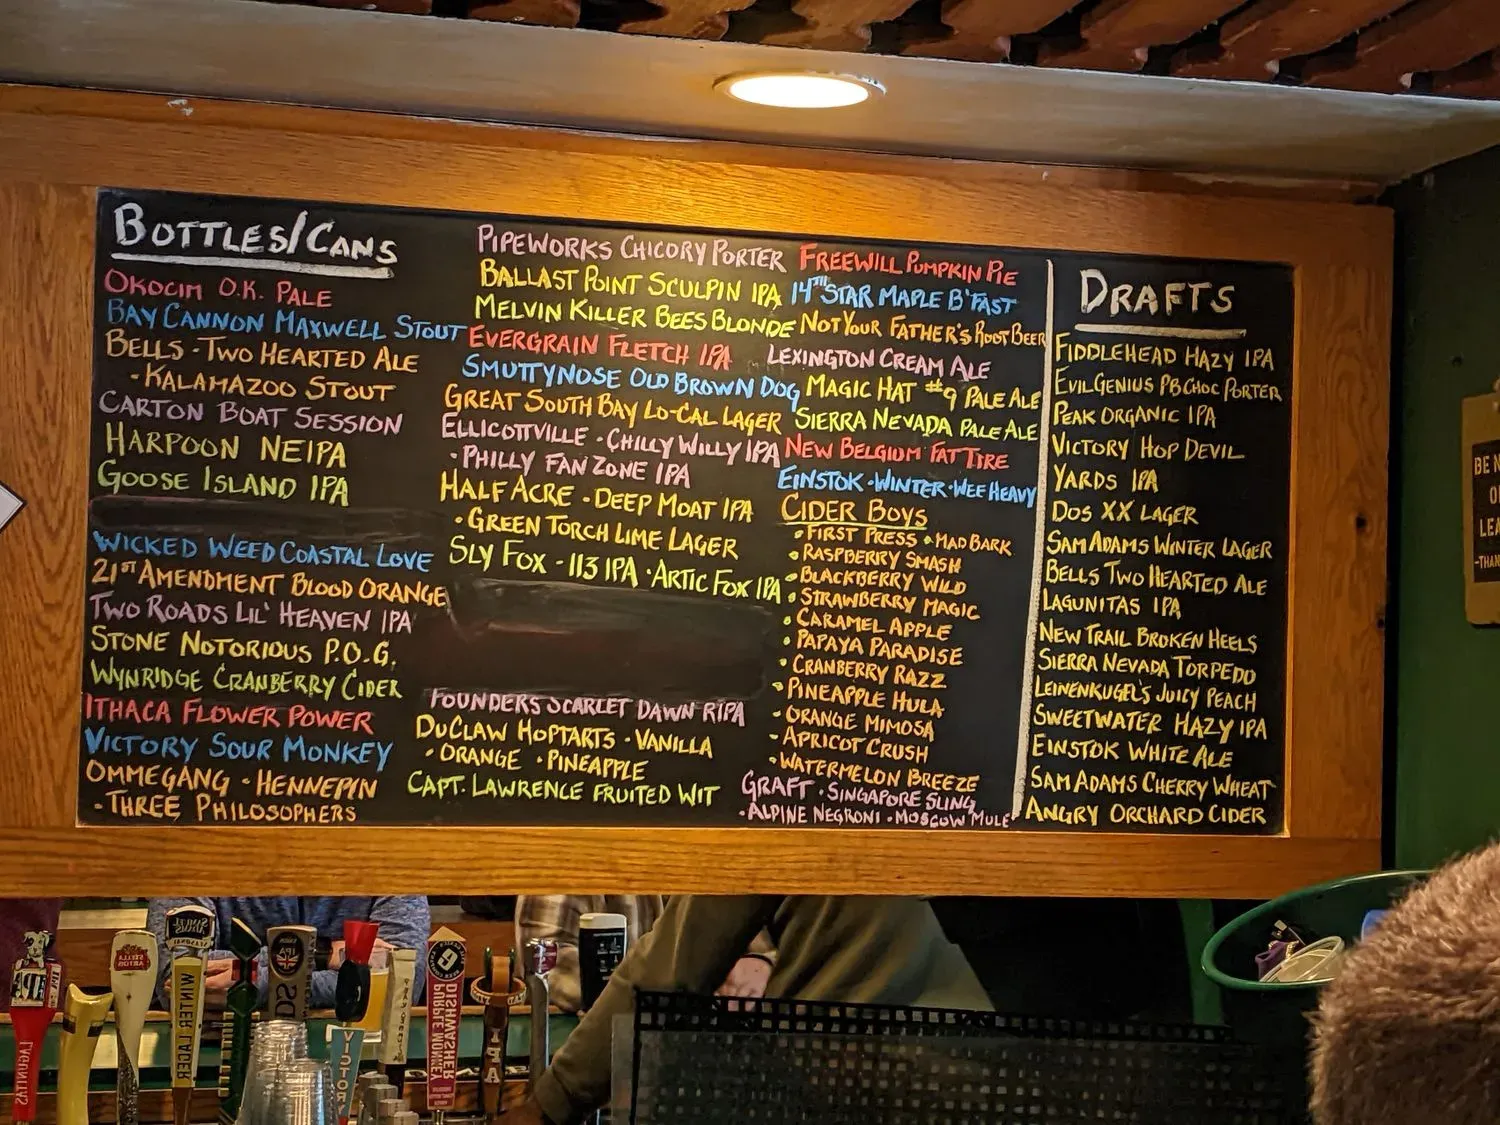 BOTTLES/CANS
OKOCIM O.K. PALE
BAY CANNON MAXWELL STOUT
BELLS · TWO HEARTED ALE
· KALAMAZOO STOUT
CARTON BOAT SESSION
HARPOON NEIPA
GOOSE ISLAND IPA
WICKED WEED COASTAL LOVE
21ST AMENDMENT BLOOD ORANGE
TWO ROADS LIL' HEAVEN IPA
STONE NOTORIOUS P.O.G.
WYNRIDGE CRANBERRY CIDER
ITHACA FLOWER POWER
VICTORY SOUR MONKEY
OMMEGANG · HENNEPIN
· THREE PHILOSOPHERS
PIPEWORKS CHICORY PORTER
BALLAST POINT SCULPIN IPA
MELVIN KILLER BEES BLONDE
EVERGRAIN FLETCH IPA
SMUTTYNOSE OLD BROWN DOG
GREAT SOUTH BAY LO-CAL LAGER
ELLICOTTVILLE · CHILLY WILLY IPA
· PHILLY FAN ZONE IPA
HALF ACRE · DEEP MOAT IPA
· GREEN TORCH LIME LAGER
SLY FOX · 113 IPA · ARTIC FOX IPA
FOUNDERS SCARLET DAWN RIPA
DUCLAW HOPTARTS · VANILLA
· ORANGE · PINEAPPLE
CAPT. LAWRENCE FRUITED WIT
FREEWILL PUMPKIN PIE
14TH STAR MAPLE B'FAST
NOT YOUR FATHER'S ROOT BEER
LEXINGTON CREAM ALE
MAGIC HAT #9 PALE ALE
SIERRA NEVADA PALE ALE
NEW BELGIUM FAT TIRE
EINSTOK · WINTER · WEE HEAVY
CIDER BOYS
· FIRST PRESS · MAD BARK
· RASPBERRY SMASH
· BLACKBERRY WILD
· STRAWBERRY MAGIC
· CARAMEL APPLE
· PAPAYA PARADISE
· CRANBERRY RAZZ
· PINEAPPLE HULA
· ORANGE MIMOSA
· APRICOT CRUSH
· WATERMELON BREEZE
GRAFT · SINGAPORE SLING
· ALPINE NEGRONI · MOSCOW MULE
DRAFTS
FIDDLEHEAD HAZY IPA
EVIL GENIUS PB CHOC PORTER
PEAK ORGANIC IPA
VICTORY HOP DEVIL
YARDS IPA
DOS XX LAGER
SAM ADAMS WINTER LAGER
BELLS TWO HEARTED ALE
LAGUNITAS IPA
NEW TRAIL BROKEN HEELS
SIERRA NEVADA TORPEDO
LEINENKUGEL'S JUICY PEACH
SWEETWATER HAZY IPA
EINSTOK WHITE ALE
SAM ADAMS CHERRY WHEAT
ANGRY ORCHARD CIDER
STELLA ARTOIS
WINTER LAGER
LAGUNITAS
9
DISHWASHER
PURPLE MONKEY
IPA